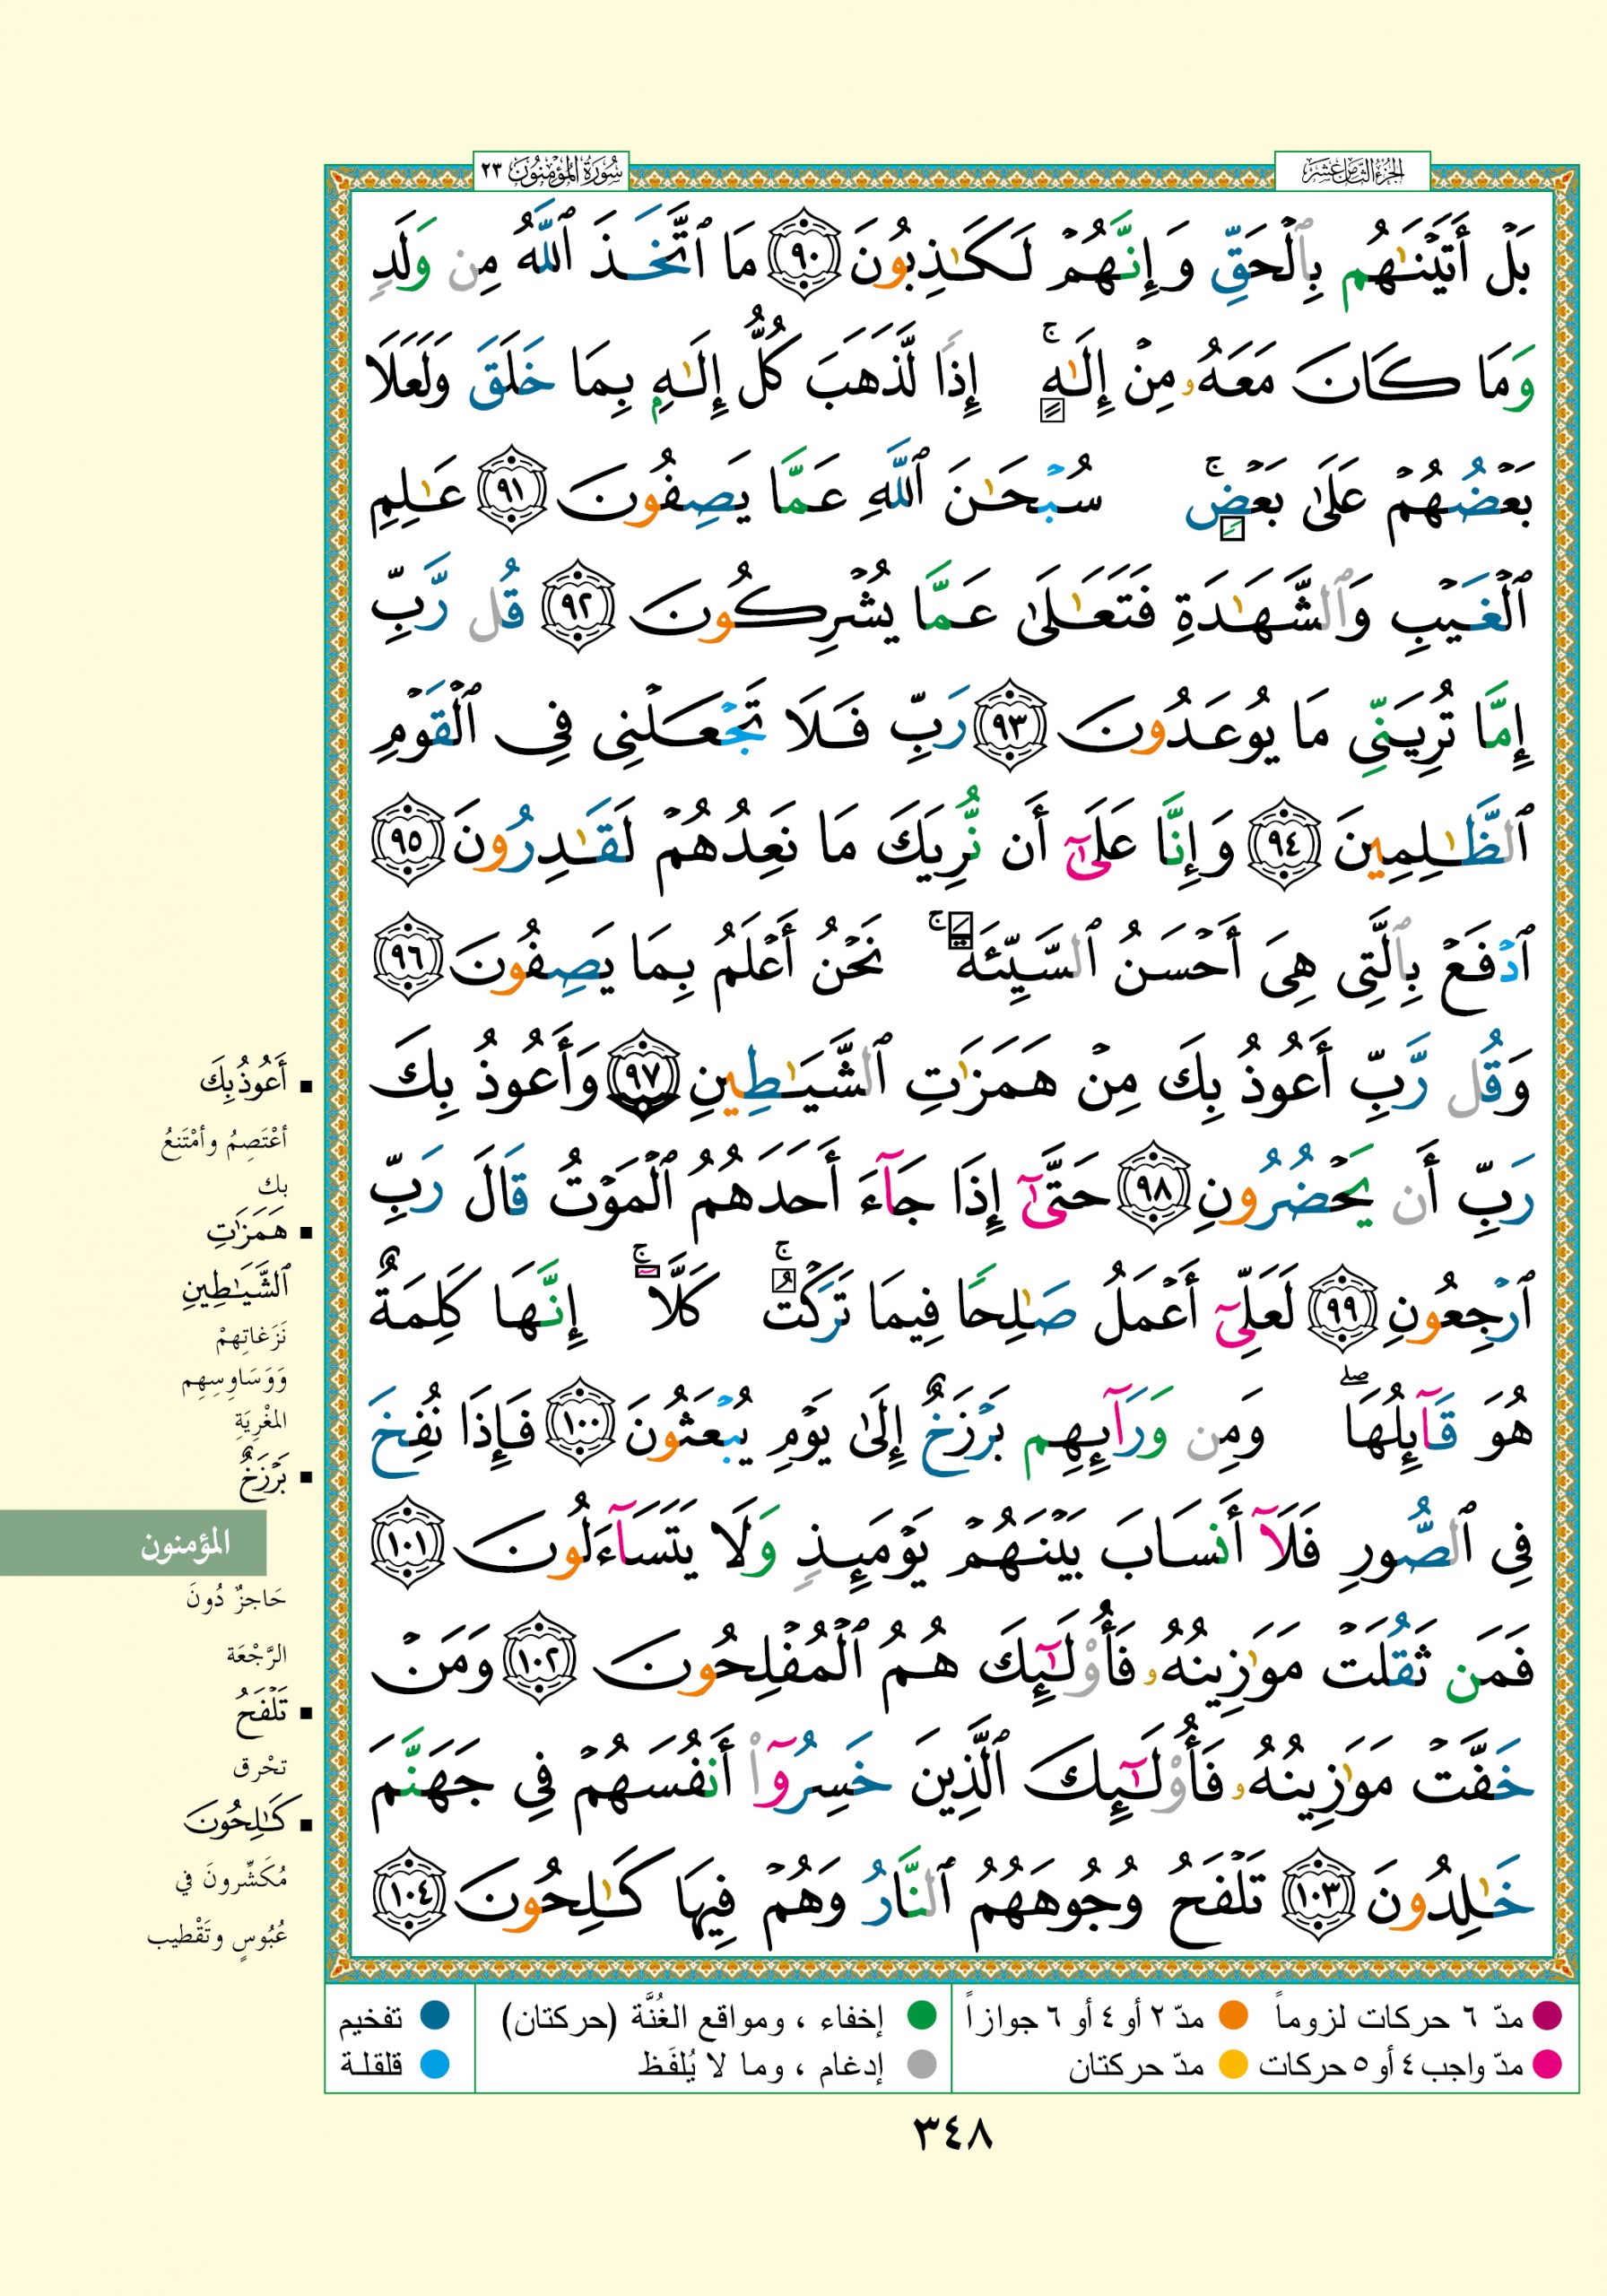 الجزء الثامن عشر
سورة المؤمنون ٢٣
بَلْ أَتَيْنَٰهُم بِٱلْحَقِّ وَإِنَّهُمْ لَكَٰذِبُونَ ٩٠ مَا ٱتَّخَذَ ٱللَّهُ مِن وَلَدٍ
وَمَا كَانَ مَعَهُۥ مِنْ إِلَٰهٍ ۚ إِذًا لَّذَهَبَ كُلُّ إِلَٰهٍۭ بِمَا خَلَقَ وَلَعَلَا
بَعْضُهُمْ عَلَىٰ بَعْضٍ ۚ سُبْحَٰنَ ٱللَّهِ عَمَّا يَصِفُونَ ٩١ عَٰلِمِ
ٱلْغَيْبِ وَٱلشَّهَٰدَةِ فَتَعَٰلَىٰ عَمَّا يُشْرِكُونَ ٩٢ قُل رَّبِّ
إِمَّا تُرِيَنِّى مَا يُوعَدُونَ ٩٣ رَبِّ فَلَا تَجْعَلْنِى فِى ٱلْقَوْمِ
ٱلظَّٰلِمِينَ ٩٤ وَإِنَّا عَلَىٰٓ أَن نُّرِيَكَ مَا نَعِدُهُمْ لَقَٰدِرُونَ ٩٥
ٱدْفَعْ بِٱلَّتِى هِىَ أَحْسَنُ ٱلسَّيِّئَةَ ۚ نَحْنُ أَعْلَمُ بِمَا يَصِفُونَ ٩٦
وَقُل رَّبِّ أَعُوذُ بِكَ مِنْ هَمَزَٰتِ ٱلشَّيَٰطِينِ ٩٧ وَأَعُوذُ بِكَ
رَبِّ أَن يَحْضُرُونِ ٩٨ حَتَّىٰٓ إِذَا جَآءَ أَحَدَهُمُ ٱلْمَوْتُ قَالَ رَبِّ
ٱرْجِعُونِ ٩٩ لَعَلِّىٓ أَعْمَلُ صَٰلِحًا فِيمَا تَرَكْتُ ۚ كَلَّآ ۚ إِنَّهَا كَلِمَةٌ
هُوَ قَآئِلُهَا ۖ وَمِن وَرَآئِهِم بَرْزَخٌ إِلَىٰ يَوْمِ يُبْعَثُونَ ١٠٠ فَإِذَا نُفِخَ
فِى ٱلصُّورِ فَلَآ أَنسَابَ بَيْنَهُمْ يَوْمَئِذٍ وَلَا يَتَسَآءَلُونَ ١٠١
فَمَن ثَقُلَتْ مَوَٰزِينُهُۥ فَأُو۟لَٰٓئِكَ هُمُ ٱلْمُفْلِحُونَ ١٠٢ وَمَنْ
خَفَّتْ مَوَٰزِينُهُۥ فَأُو۟لَٰٓئِكَ ٱلَّذِينَ خَسِرُوٓا۟ أَنفُسَهُمْ فِى جَهَنَّمَ
خَٰلِدُونَ ١٠٣ تَلْفَحُ وُجُوهَهُمُ ٱلنَّارُ وَهُمْ فِيهَا كَٰلِحُونَ ١٠٤
أَعُوذُ بِكَ
أعْتَصِمُ وأمْتَنعُ
بك
هَمَزَٰتِ
ٱلشَّيَٰطِينِ
نَزَغاتِهِمْ
وَوَسَاوِسِهِم
المغْرِيَةِ
بَرْزَخٌ
المؤمنون
حَاجزٌ دُونَ
الرَّجْعَة
تَلْفَحُ
تحْرق
كَٰلِحُونَ
مُكَشِّرونَ في
عُبُوسٍ وتَقْطيب
مدّ ٦ حركات لزوماً
مدّ ٢ أو ٤ أو ٦ جوازاً
إخفاء ، ومواقع الغُنَّة (حركتان)
تفخيم
مدّ واجب ٤ أو ٥ حركات
مدّ حركتان
إدغام ، وما لا يُلفَظ
قلقلة
٣٤٨